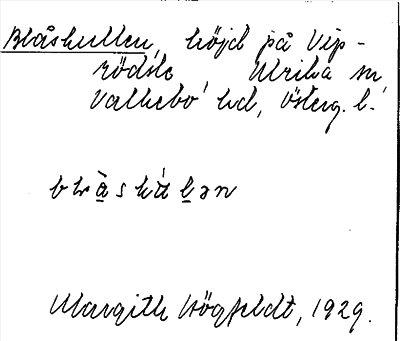 Blåskullen, höjd på Vip-
rödsle Ulrika sn,
Valkebo hd, Österg. l.
blàskúlən
Margith Högfeldt, 1929.